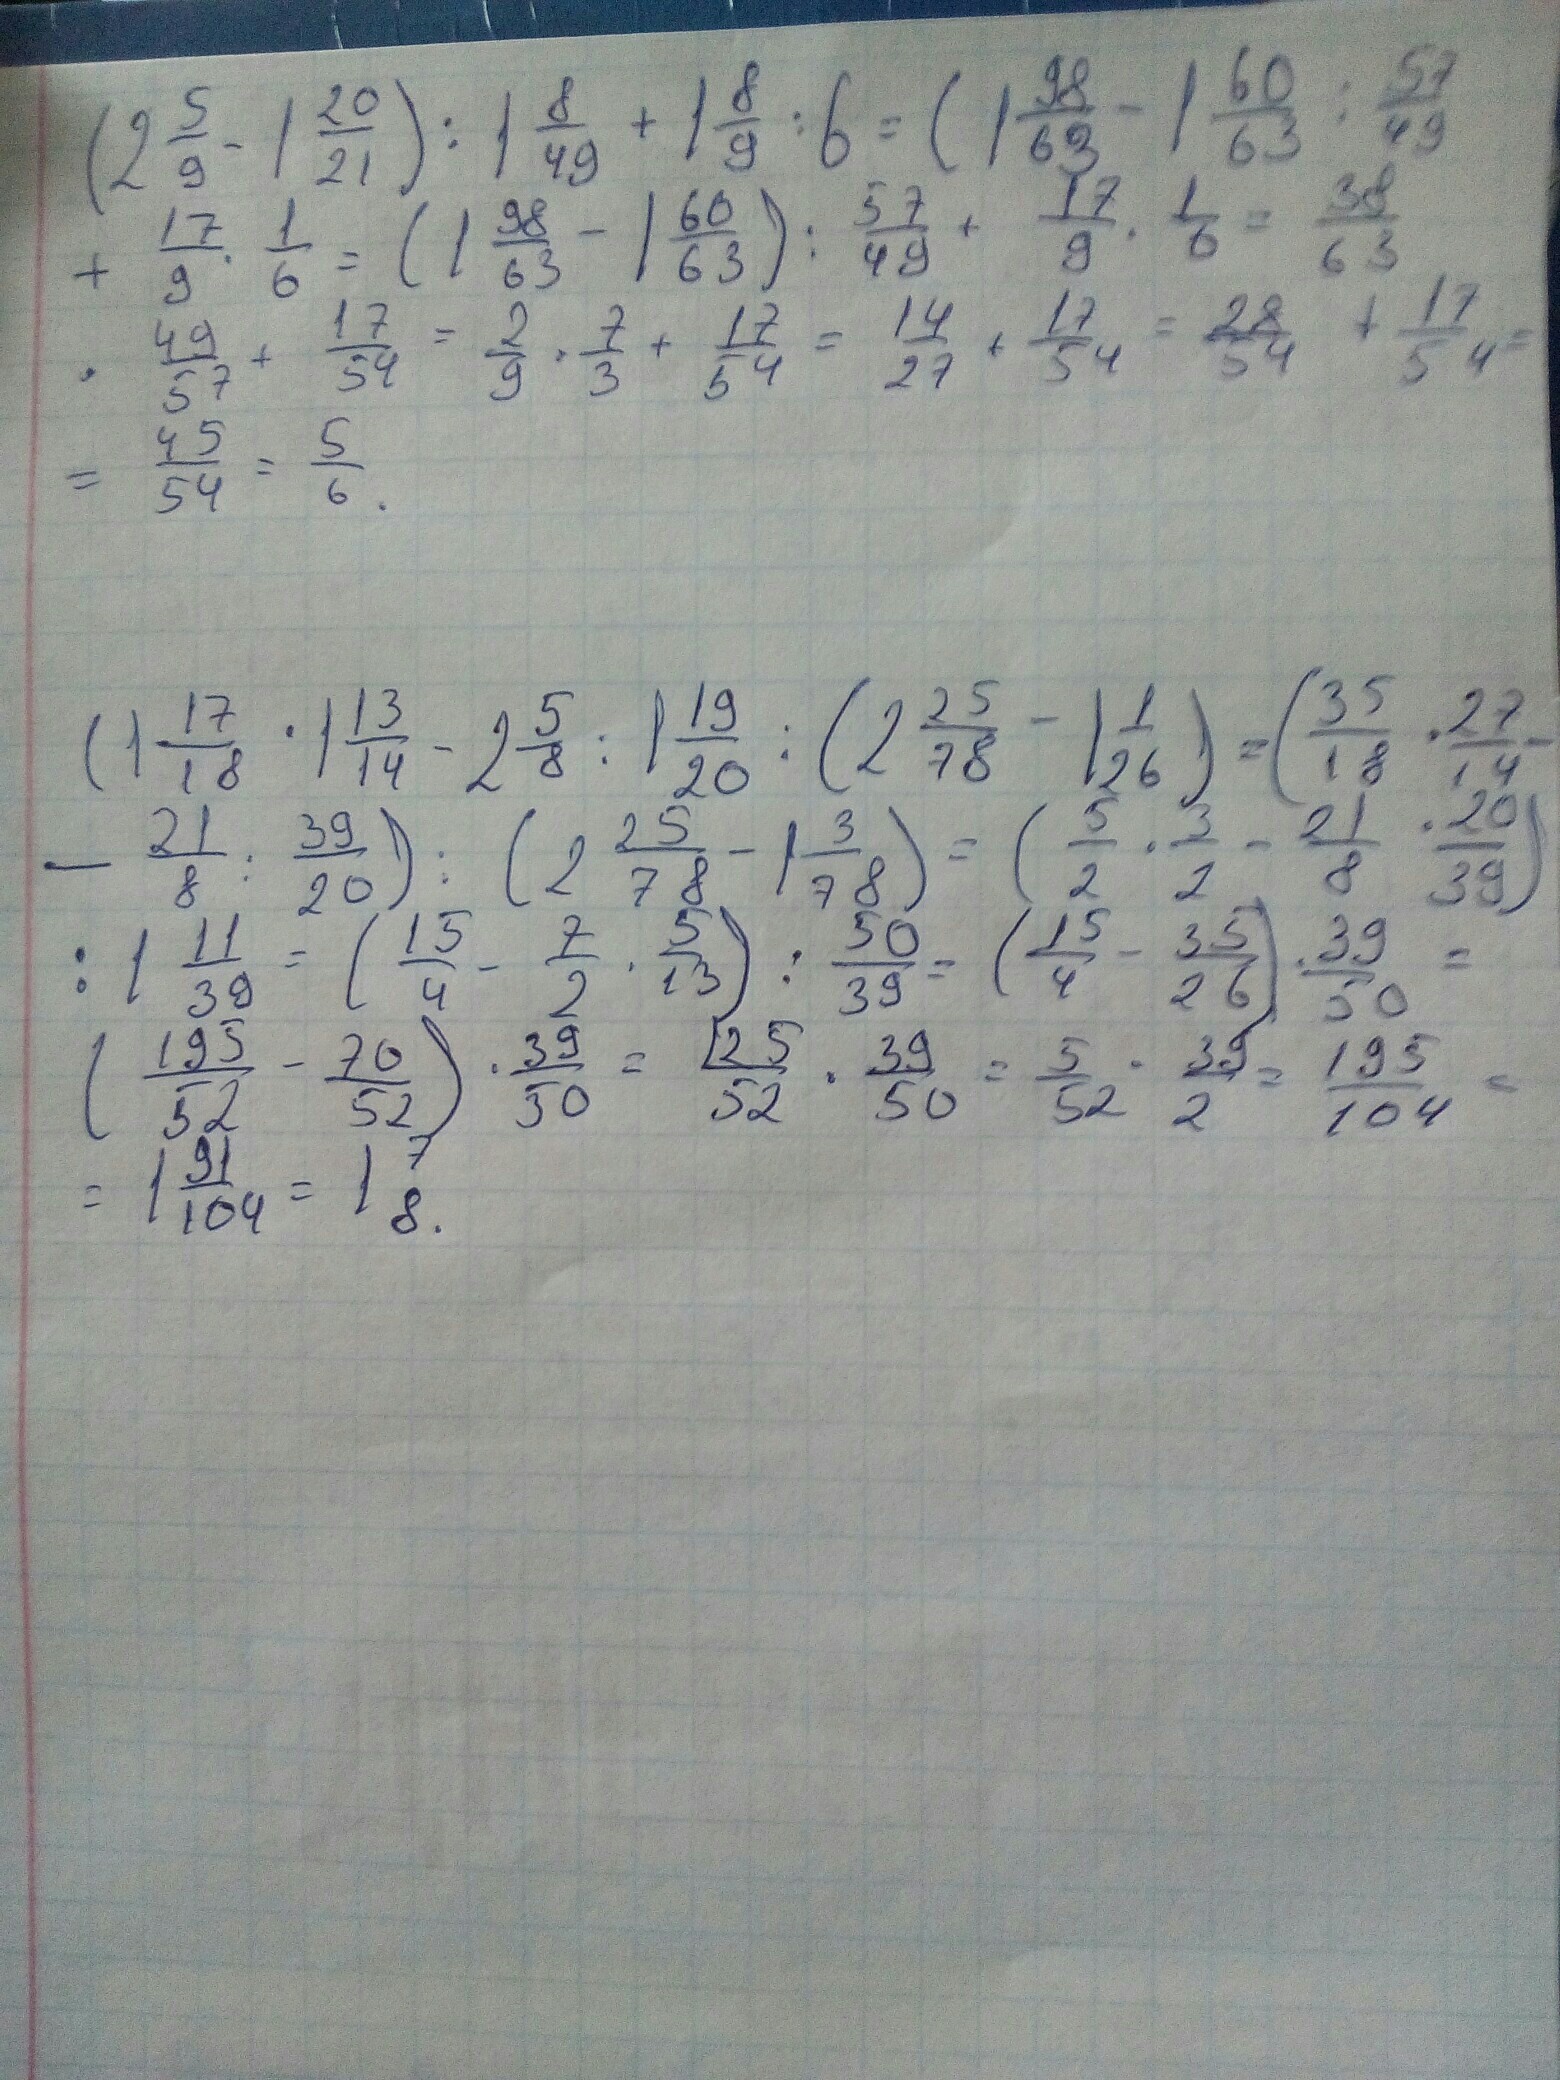 (2 5/9 - 1 20/21) : 1 8/49 + 1 8/9 : 6 = (1 98/63 - 1 60/63 : 57/49
+ 17/9 · 1/6 = (1 98/63 - 1 60/63) : 57/49 + 17/9 · 1/6 = 38/63
· 49/57 + 17/54 = 2/9 · 7/3 + 17/54 = 14/27 + 17/54 = 28/54 + 17/54 =
= 45/54 = 5/6.
(1 17/18 · 1 13/14 - 2 5/8 : 1 19/20 : (2 25/78 - 1 1/26) = (35/18 · 27/14 -
- 21/8 : 39/20) : (2 25/78 - 1 3/78) = (5/2 · 3/2 - 21/8 · 20/39)
: 1 11/39 = (15/4 - 7/2 · 5/13) : 50/39 = (15/4 - 35/26) · 39/50 =
(195/52 - 70/52) · 39/50 = 125/52 · 39/50 = 5/52 · 39/2 = 195/104 =
= 1 91/104 = 1 7/8.